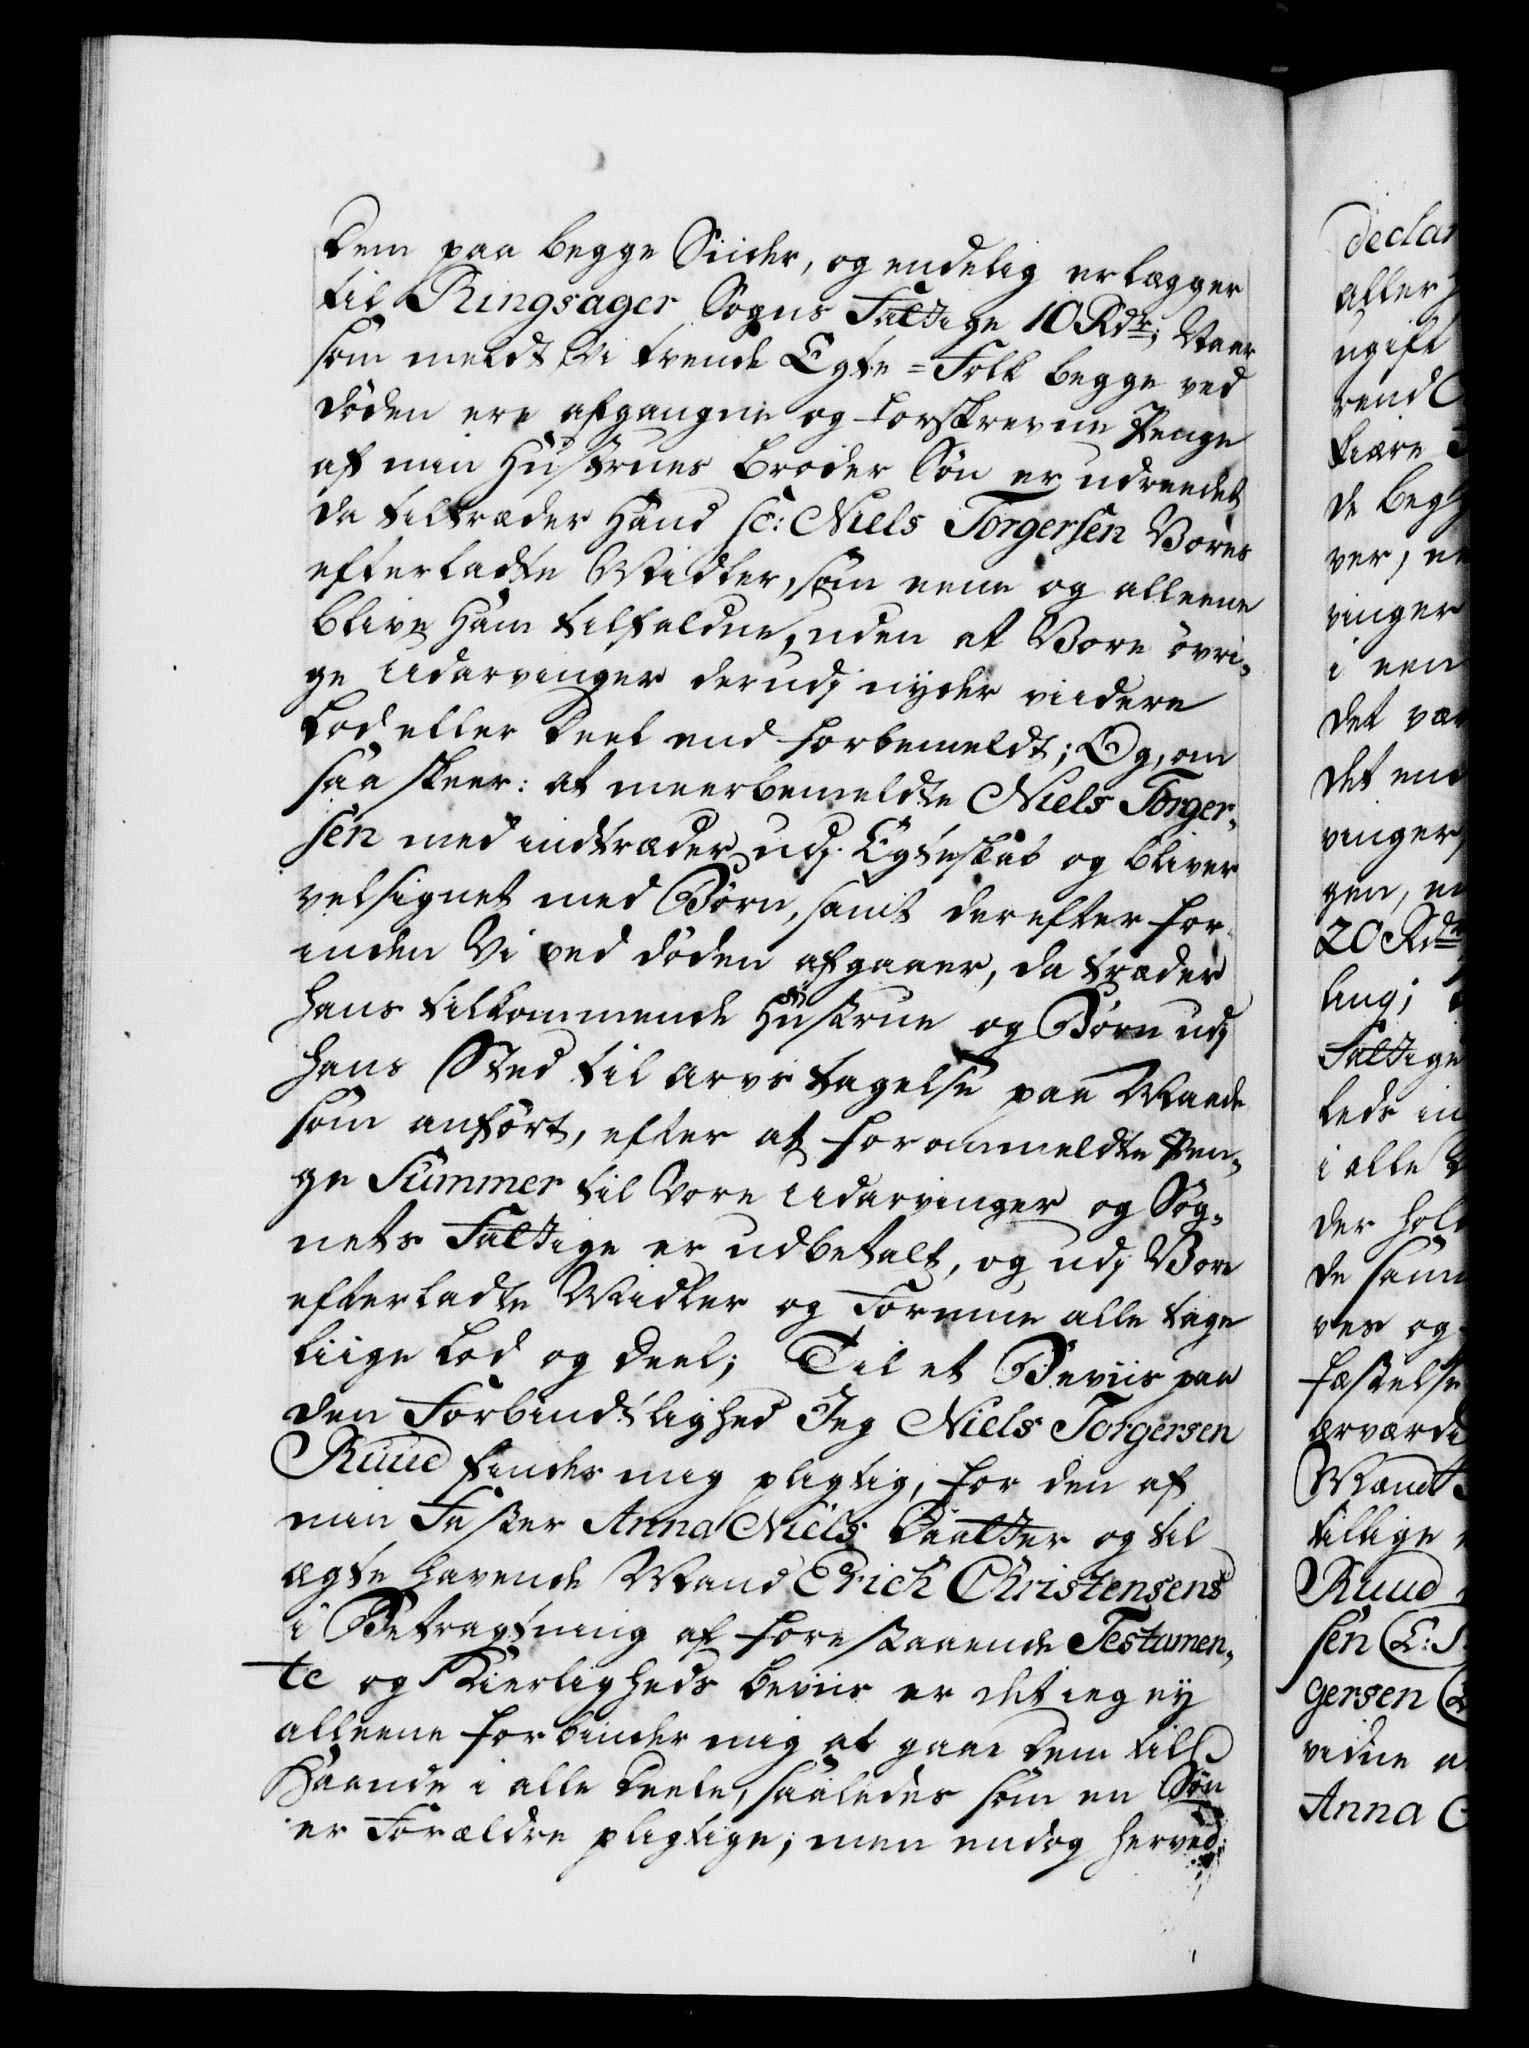 dem paa begge Siider, og endelig erlegger
til Ringsager Sogns Fattige 10 Rdr; Naar
som meldt Vi trende Egte=Folk begge ved
döden ere afgangne og forskrevne Penge
af min Hustrues broder Sön er udreedet
da tiltræder Hand sc: Niels Torgersen Vores
efterladte Midler, som eene og alleene
blive Ham tilfaldne, uden at Vore övri-
ge Udarvinger derudj nyder viidere
Lod eller Deel end forbemeldt; Og, om
saa skeer: at meerbemeldte Niels Torger-
sen med indtræder udj Egteskab og bliver
velsignet med Børn, samt derefter for-
inden Vi ved döden afgaaer, da træder
hans tilkommende Hustrue og Børn udj
hans Sted til arvs tagelse paa Maade
som anfört, efter at forommeldte Pen-
ge Summer til Vore Udarvinger og Sog-
nets Fattige er udbetalt, og udj Vore
efterladte Midler og Formue alle tage
liige Lod og deel; Til et Beviis paa
den Forbindtlighed Jeg Niels Torgersen
Ruud finder mig pligtig, for den af
min Faster Anna Niels Daatter og til
ægte havende Mand Erich Christensens
i Betragtning af forestaaende Testamen-
te og Kierligheds beviis er det ieg ey
alleene forbinder mig at gaae dem till
Haande i alle Deele, saaledes som en Sön
er Forældre pligtige; men endog herved
declar
aller
ugift
rend
kiære
de beg
ver, en
vinger
i een
det vær
det end
vinger,
gen, en
20 Rdr
ling;
Fattige
leds in
i alle
der hold
de sam
ves og
fæstelse
ærværdi
Mand
tillige
Ruud
sen (L: S
gersen (L
vidne a
Anna